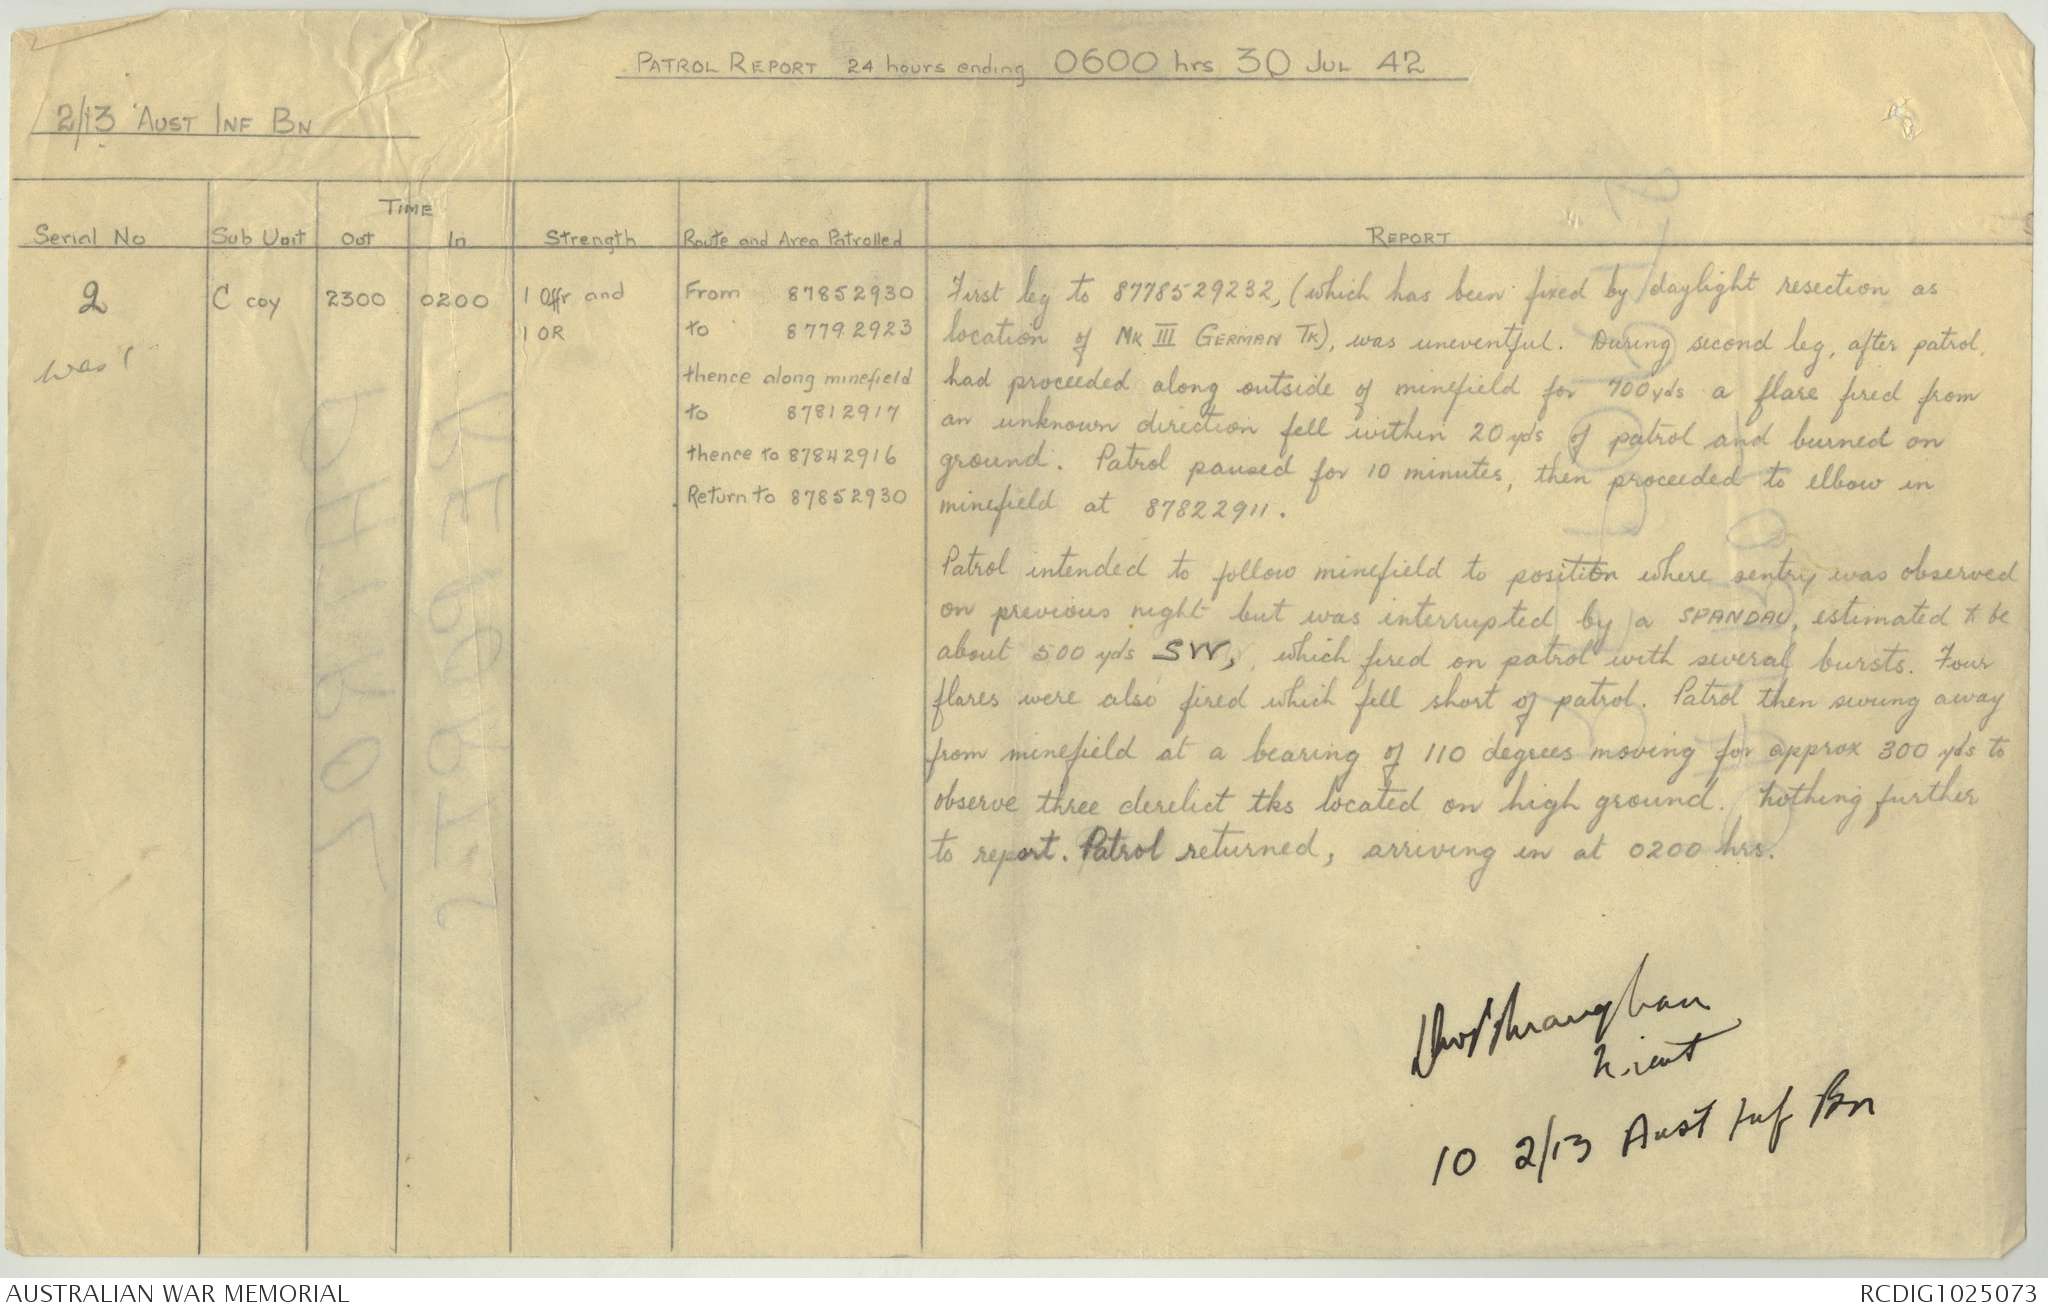 PATROL REPORT 24 hours ending 0600 hrs 30 JUL 42
2/13 AUST INF BN
TIME
Serial No Sub Unit Out In Strength Route and Area Patrolled REPORT
2 C coy 2300 0200 1 Offr and
1 OR
was 1
From 87852930
to 87792923
thence along minefield
to 87812917
thence to 87842916
Return to 87852930
First leg to 8778529232, (which has been fixed by daylight resection as
location of MK III GERMAN TK), was uneventful. During second leg, after patrol
had proceeded along outside of minefield for 700 yds a flare fired from
an unknown direction fell within 20 yds of patrol and burned on
ground. Patrol paused for 10 minutes, then proceeded to elbow in
minefield at 87822911.
Patrol intended to follow minefield to position where sentry was observed
on previous night but was interrupted by a SPANDAU, estimated to be
about 500 yds SW, which fired on patrol with several bursts. Four
flares were also fired which fell short of patrol. Patrol then swung away
from minefield at a bearing of 110 degrees moving for approx 300 yds to
observe three derelict tks located on high ground. Nothing further
to report. Patrol returned, arriving in at 0200 hrs.
Lieut
IO 2/13 Aust Inf Bn
AUSTRALIAN WAR MEMORIAL
RCDIG1025073